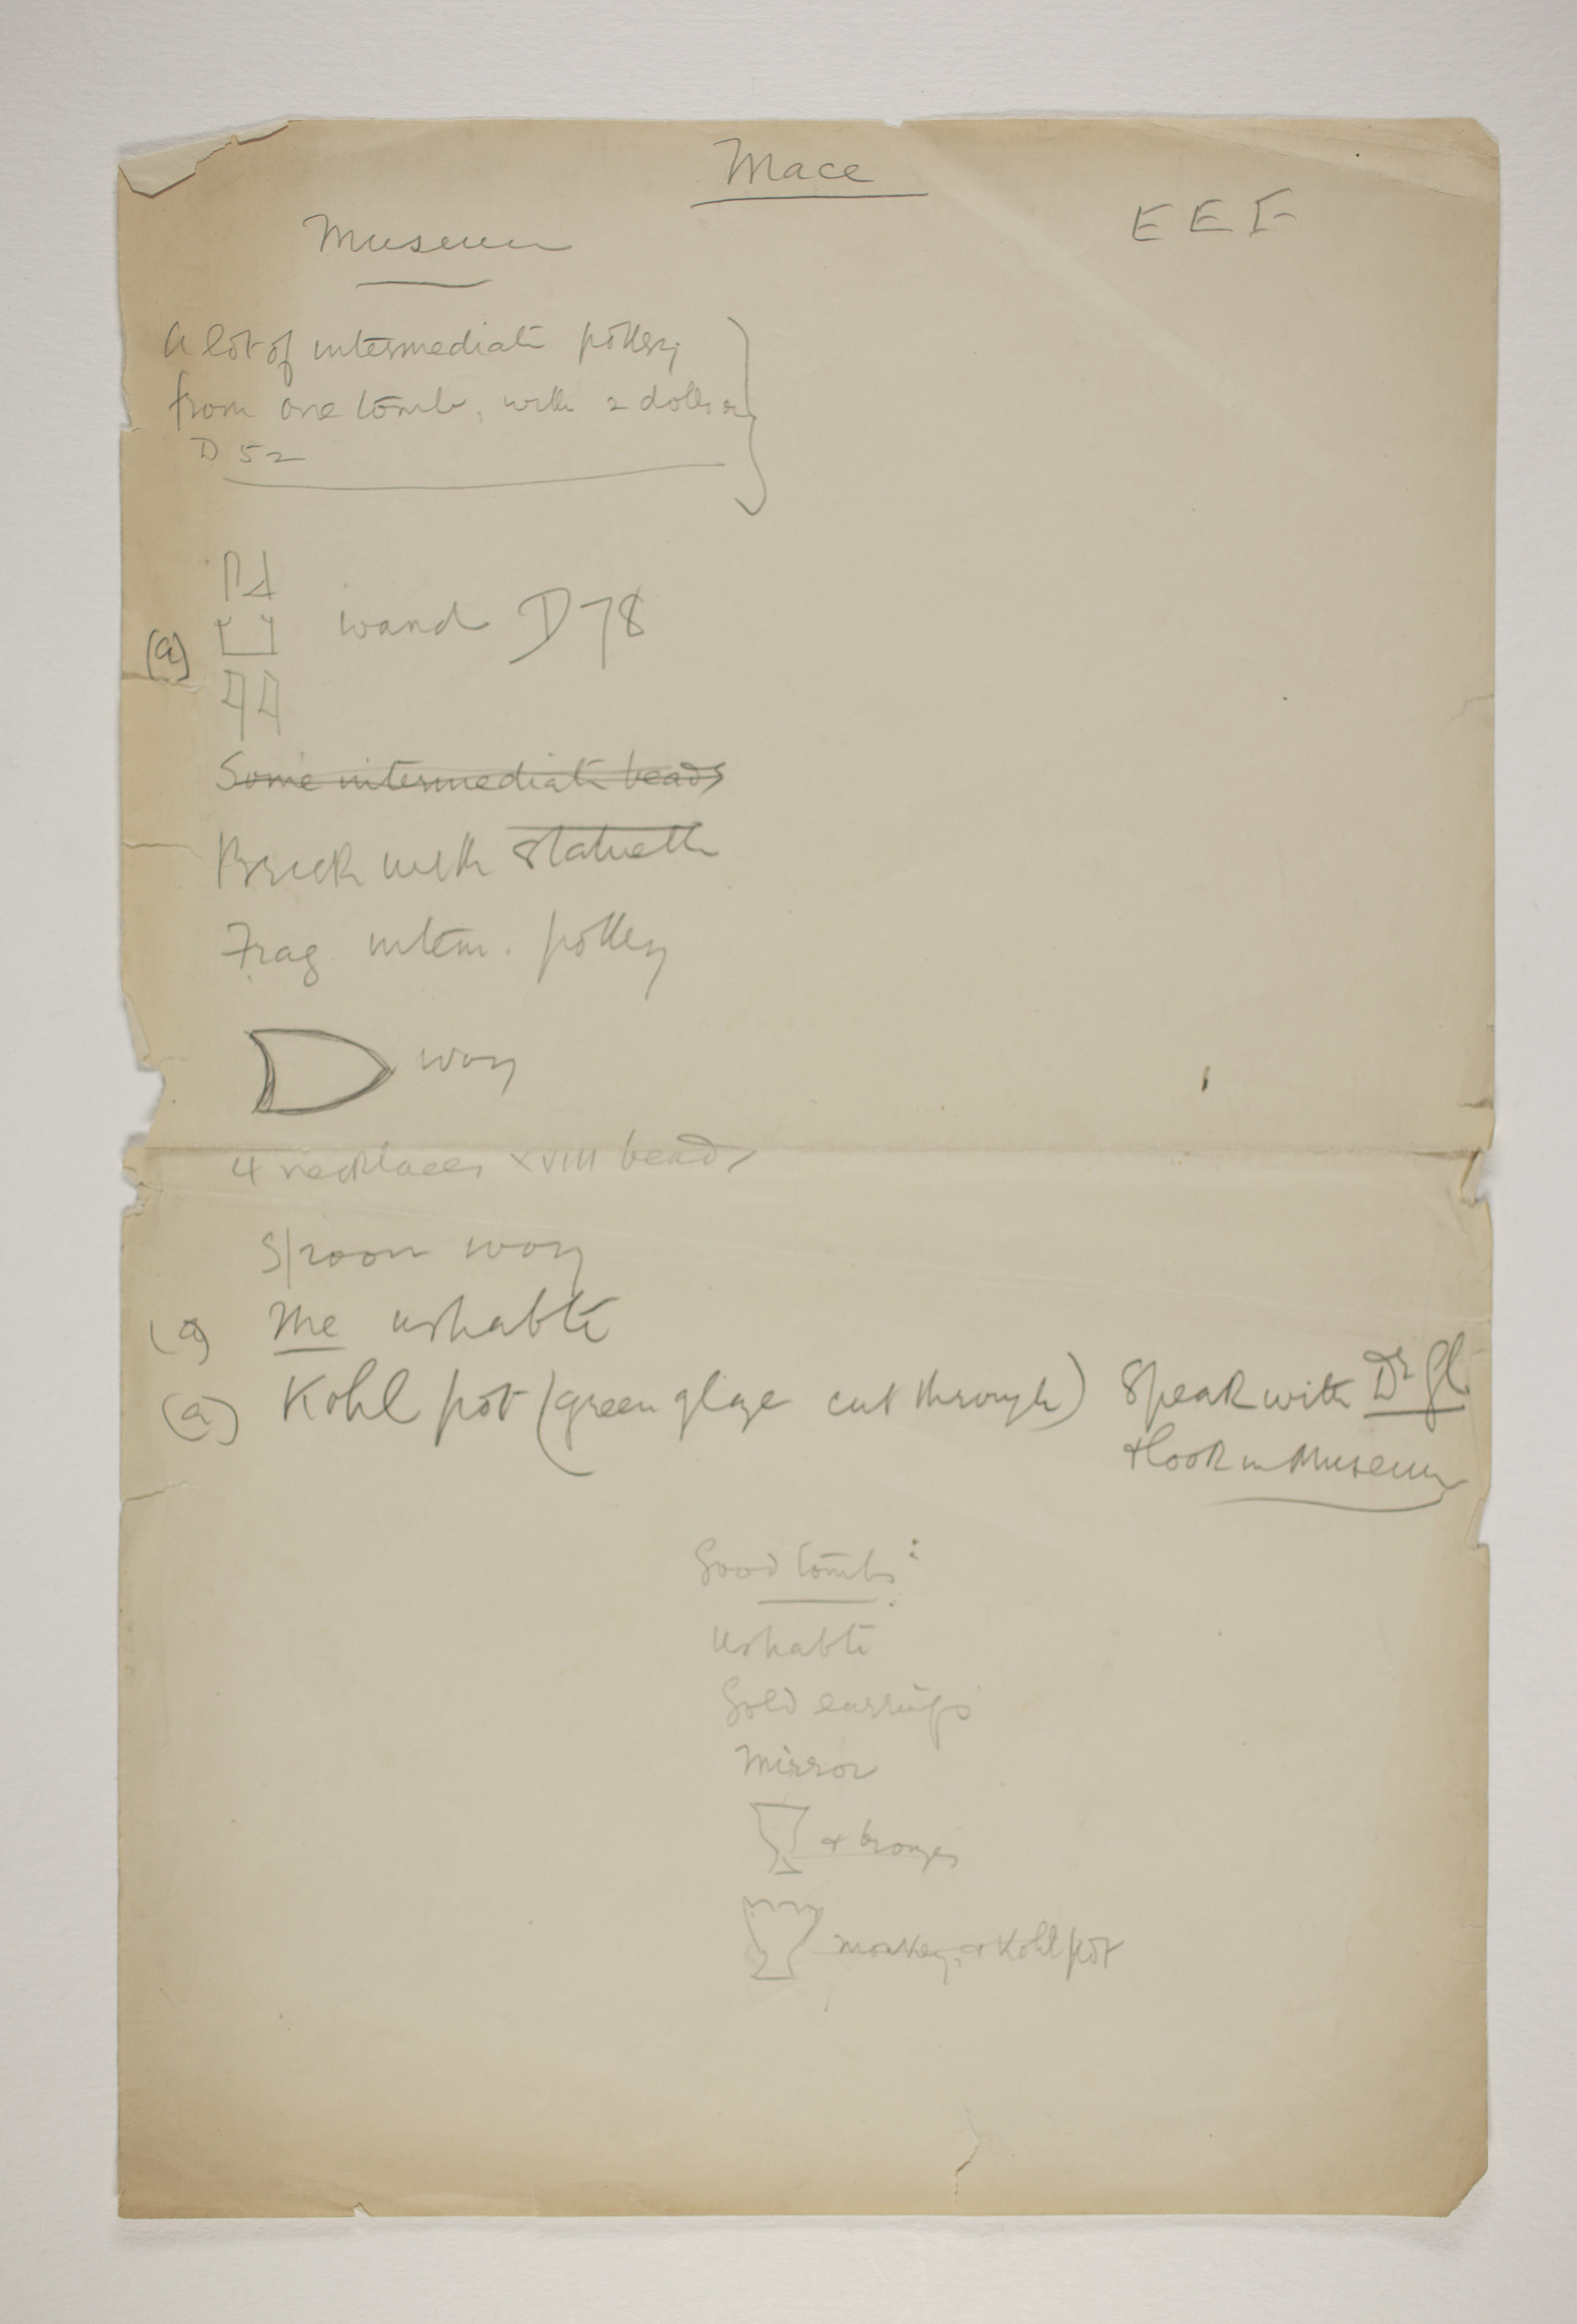 Mace
Museum
E E F
A lot of intermediate pottery
from one tomb, with 2 dolls
D 52
(a)
wand D78
Some intermediate beads
Brick with statuette
Frag interm. pottery
ivory
4 necklaces XVIII beads
Spoon ivory
(a) The ushabti
(a) Kohl pot (green glaze cut through) Speak with Dr Gl.
& look in Museum
Good tombs:
Ushabti
Gold earrings
Mirror
& bronzes
monkey & Kohl pot